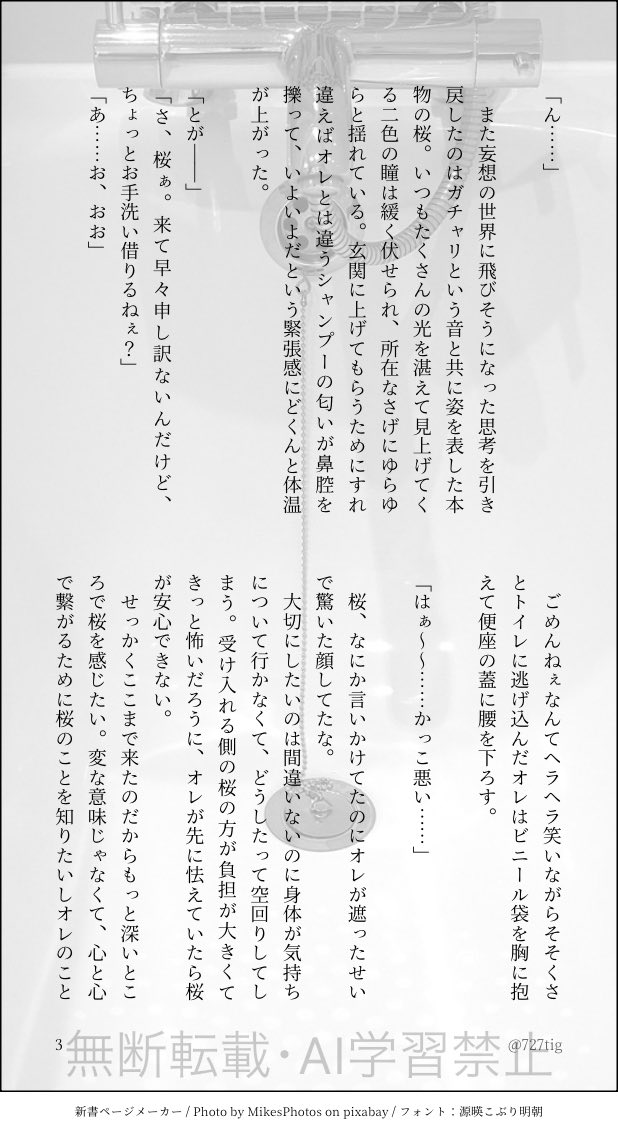 「ん……」
　また妄想の世界に飛びそうになった思考を引き
戻したのはガチャリという音と共に姿を表した本
物の桜。いつもたくさんの光を湛えて見上げてく
る二色の瞳は緩く伏せられ、所在なさげにゆらゆ
らと揺れている。玄関に上げてもらうためにすれ
違えばオレとは違うシャンプーの匂いが鼻腔を
擽って、いよいよだという緊張感にどくんと体温
が上がった。
「とが――」
「さ、桜ぁ。来て早々申し訳ないんだけど、
ちょっとお手洗い借りるねぇ？」
「あ……お、おお」
　ごめんねぇなんてヘラヘラ笑いながらそそくさ
とトイレに逃げ込んだオレはビニール袋を胸に抱
えて便座の蓋に腰を下ろす。
「はぁ〜〜……かっこ悪い……」
　桜、なにか言いかけてたのにオレが遮ったせい
で驚いた顔してたな。
　大切にしたいのは間違いないのに身体が気持ち
について行かなくて、どうしたって空回りしてし
まう。受け入れる側の桜の方が負担が大きくて
きっと怖いだろうに、オレが先に怯えていたら桜
が安心できない。
　せっかくここまで来たのだからもっと深いとこ
ろで桜を感じたい。変な意味じゃなくて、心と心
で繋がるために桜のことを知りたいしオレのこと
3
無断転載・AI学習禁止
@727tig
新書ページメーカー / Photo by MikesPhotos on pixabay / フォント：源暎こぶり明朝